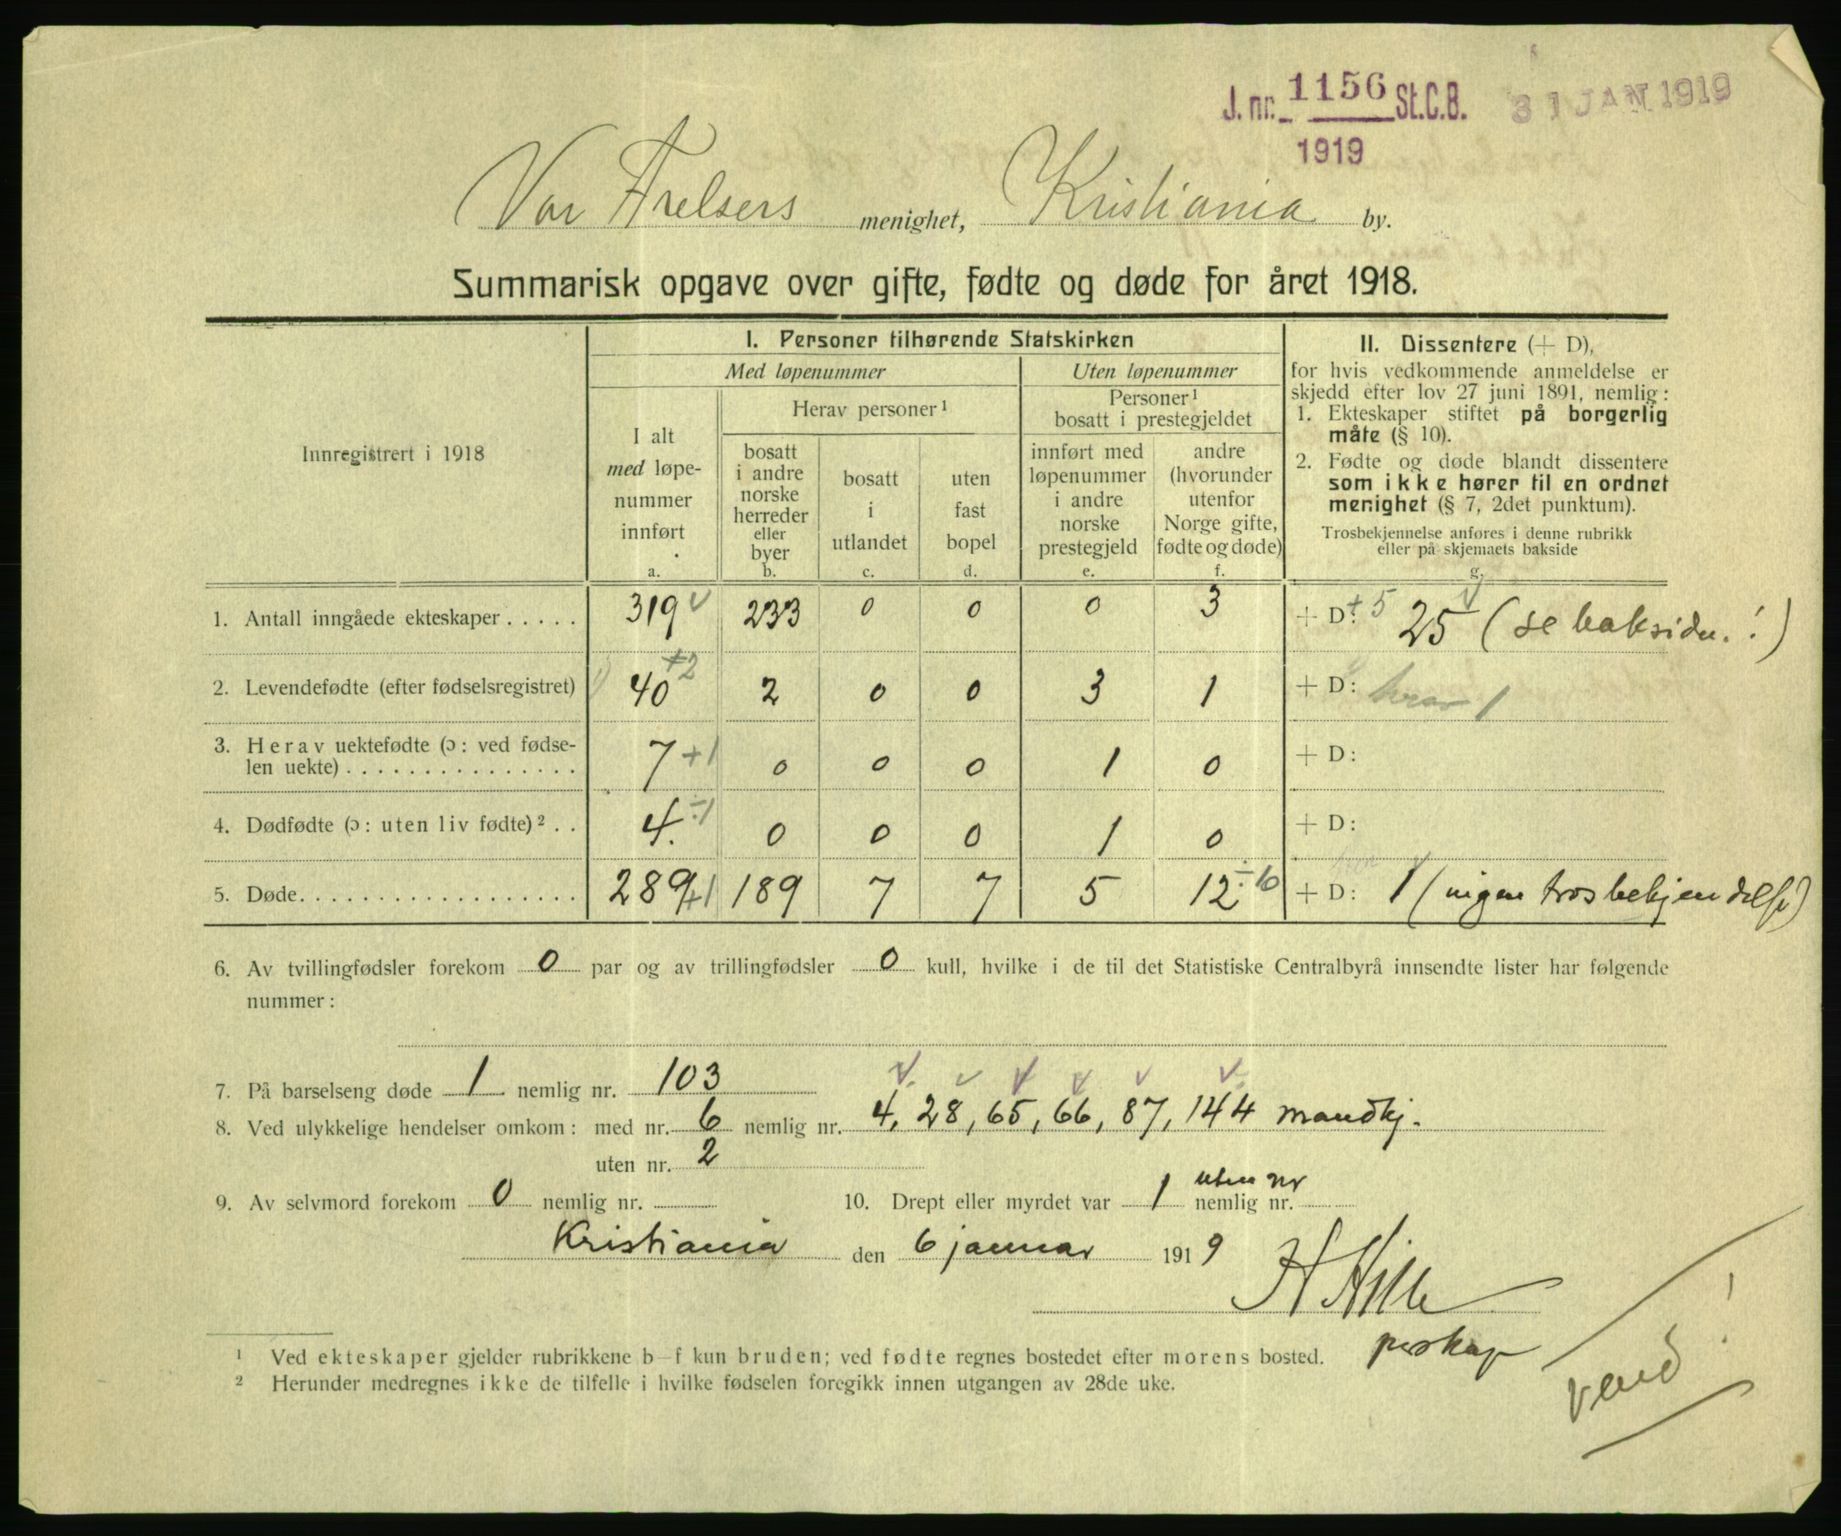 J. nr. 1156 St.C.B. 31 JAN 1919
1919
Vor Frelsers menighet, Kristiania by.
Summarisk opgave over gifte, fødte og døde for året 1918.
Innregistrert i 1918
I. Personer tilhørende Statskirken
Med løpenummer
Uten løpenummer
I alt
med løpe-
nummer
innført
a.
Herav personer¹
bosatt
i andre
norske
herreder
eller
byer
b.
bosatt
i
utlandet
c.
uten
fast
bopel
d.
Personer¹
bosatt i prestegjeldet
innført med
løpenummer
i andre
norske
prestegjeld
e.
andre
(hvorunder
utenfor
Norge gifte,
fødte og døde)
f.
II. Dissentere (+ D),
for hvis vedkommende anmeldelse er
skjedd efter lov 27 juni 1891, nemlig:
1. Ekteskaper stiftet på borgerlig
måte (§ 10).
2. Fødte og døde blandt dissentere
som ikke hører til en ordnet
menighet (§ 7, 2det punktum).
Trosbekjennelse anføres i denne rubrikk
eller på skjemaets bakside
g.
1. Antall inngåede ekteskaper . . . . . 319 v 233 0 0 0 3 + D: +5 25 (se baksiden.!)
2. Levendefødte (efter fødselsregistret) 40 +2 2 0 0 3 1 + D: 1
3. Herav uektefødte (ɔ: ved fødse-
len uekte) . . . . . . . . . . . . . . . 7 +1 0 0 0 1 0 + D:
4. Dødfødte (ɔ: uten liv fødte)² . . 4. ÷1 0 0 0 1 0 + D:
5. Døde. . . . . . . . . . . . . . . . . . 289 +1 189 7 7 5 12 + D: 1 (ingen trosbekjendelse)
6. Av tvillingfødsler forekom 0 par og av trillingfødsler 0 kull, hvilke i de til det Statistiske Centralbyrå innsendte lister har følgende
nummer:
7. På barselseng døde 1 nemlig nr. 103
8. Ved ulykkelige hendelser omkom: med nr. 6 nemlig nr. 4, 28, 65, 66, 87, 144 mandkj.
uten nr. 2
9. Av selvmord forekom 0 nemlig nr. 10. Drept eller myrdet var 1 uten nr nemlig nr.
Kristiania den 6 januar 1919
H Hille
perskap
¹ Ved ekteskaper gjelder rubrikkene b–f kun bruden; ved fødte regnes bostedet efter morens bosted.
² Herunder medregnes ikke de tilfelle i hvilke fødselen foregikk innen utgangen av 28de uke.
Vend!